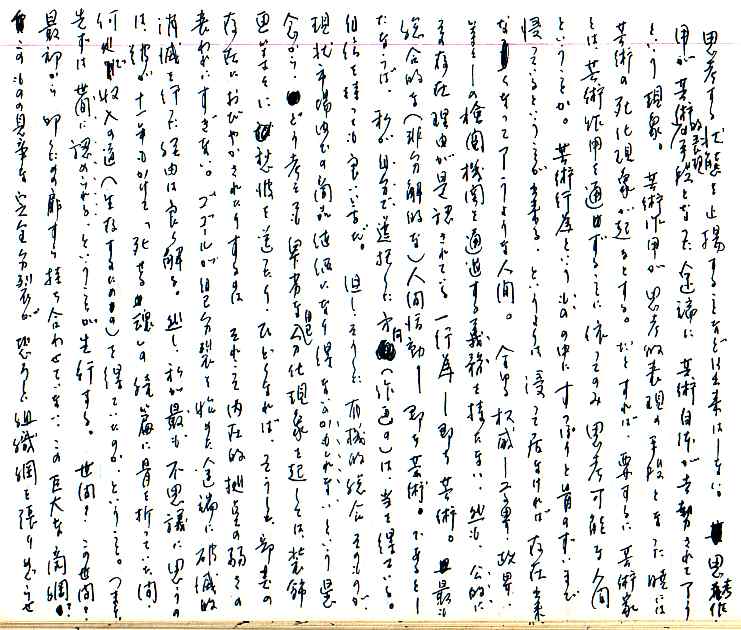 思考する状態を止揚することなど出来はしない。思考作
用が芸術的表現手段となった途端に芸術自体が去勢されてしまう
という現象。芸術作用が思考的表現の手段となった暁には
芸術の死化現象が起るとする。だとすれば、要するに芸術家
とは、芸術作用を通ずることに依ってのみ思考可能な人間
ということか。芸術行為というものの中にすっぽりと首のすじまで
浸っているということが出来る、というよりは浸って居なければ存在出来
なくなってしまうような人間。全ゆる権威―工業、政界、
等々―の検閲機関を通過する義務を持たない、然も、公的に
その存在理由が是認されている一行為―即ち芸術。最も
総合的な(非分解的な)人間活動―即ち芸術。であるとし
たならば、私が自分で選択した方向(作画の)は、当を得ている。
自信を持っても良い筈だ。但しそうした有機的総合そのものが
現状市場内での商品価値になり得ないかもしれないという疑
念から、どう考えても単なる自己分化現象を起しては、装飾
画等々に秋波を送ったり、ひどくなれば、そうした部書の
存在におびやかされたりするのは、それこそ内在的拠点の弱さの
表われにすぎない。ゴーゴールが自己分裂を始めた途端に破滅的
消滅を行った経由は良く解る。然し、私が最も不思議に思うの
は、彼が十一年もかけて「死せる魂」の続篇に骨を折っていた間、
何処で収入の道(生存するための)を得ていたのか、ということ。つまり
先ずは昔に認められる、ということが先行する。世間?この世間?
最初から即したの扉すら持ち合わせていない、この巨大な商網?
このものの見事な完全分裂が恐ろしい組織網を張り出させ